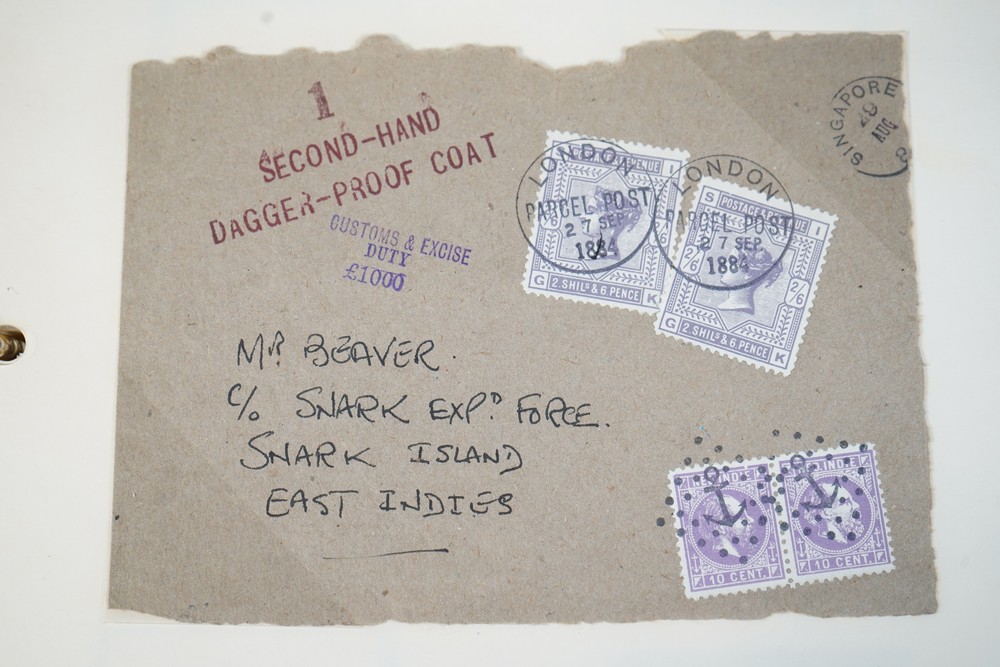 1
SECOND-HAND
DAGGER-PROOF COAT
CUSTOMS & EXCISE
DUTY
£1000
LONDON
PARCEL POST
27 SEP
1884
G 2 SHILS & 6 PENCE K
LONDON
PARCEL POST
27 SEP
1884
S POSTAGE I
2/6 2/6
G 2 SHILS & 6 PENCE K
SINGAPORE
AUG
MR BEAVER.
C/O SNARK EXPD FORCE.
SNARK ISLAND
EAST INDIES
10 CENT.
10 CENT.